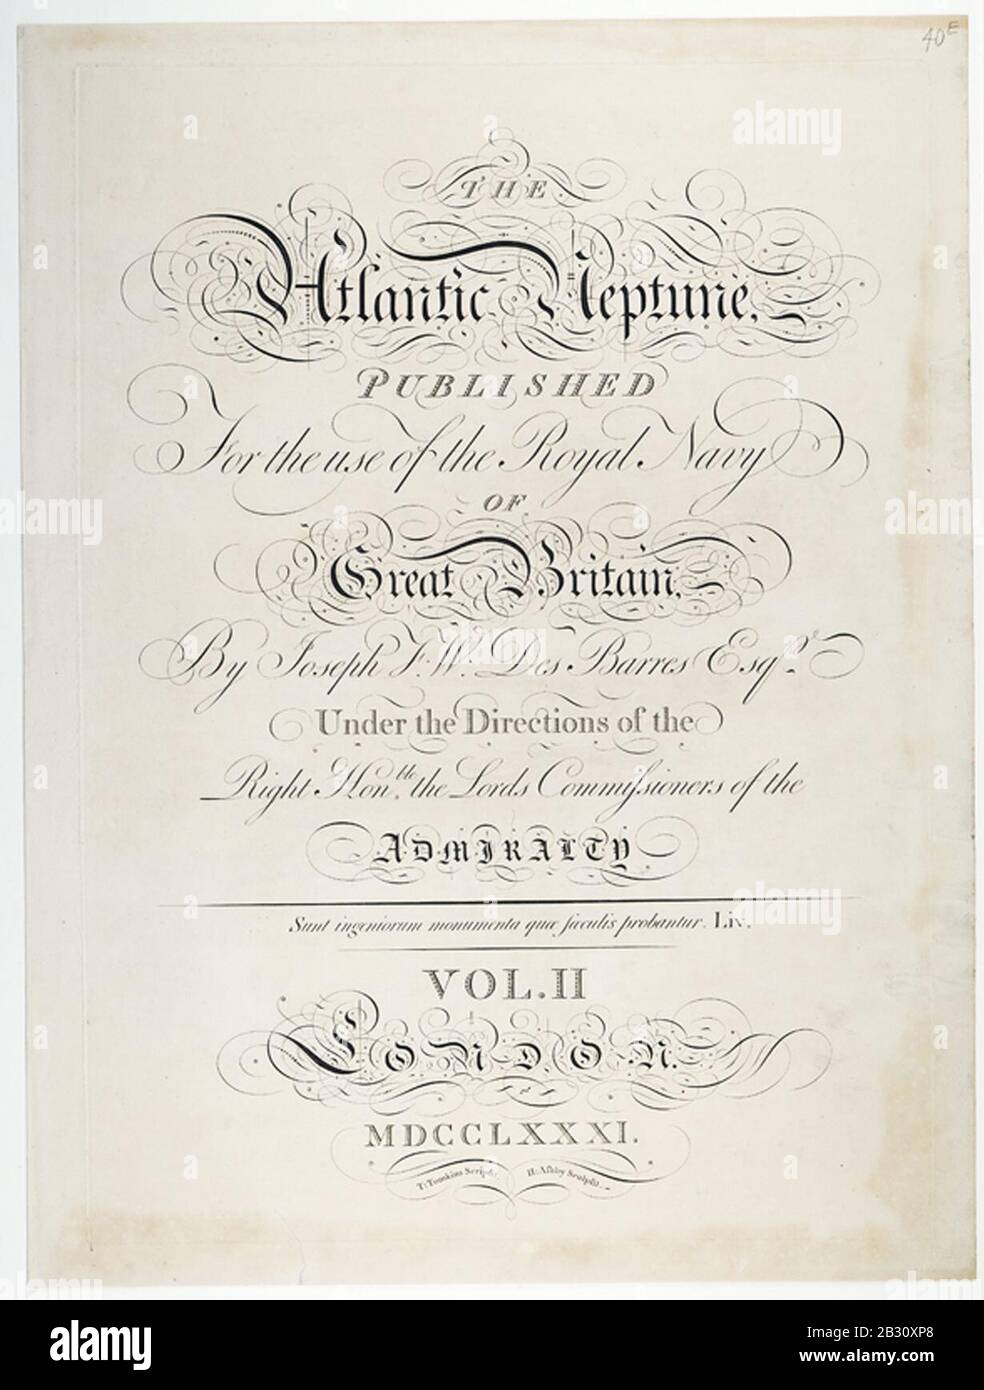 40E
THE
Atlantic Neptune,
PUBLISHED
For the use of the Royal Navy
OF
Great Britain,
By Joseph F. W. Des Barres Esqr.
Under the Directions of the
Right Honble. the Lords Commiſsioners of the
ADMIRALTY.
Sunt ingeniorum monumenta quæ ſæculis probantur. Liv.
VOL. II
LONDON.
MDCCLXXXI.
T: Tomkins Scripsit. H: Aſhby Sculpſit.
alamy
alamy
Image ID: 2B30XP8
www.alamy.com